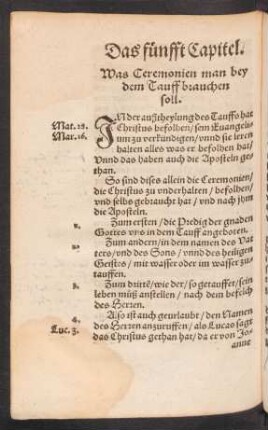 Das fünfft Capitel.
Was Ceremonien man bey
dem Tauff brauchen
soll.
Mat. 28. IN der außtheylung des Tauffs hat
Mar. 16. Christus befolhen / sein Euangeliũ
zu verkündigen / vnnd sie leren
halten alles was er befolhen hat /
Vnnd das haben auch die Aposteln ge
than.
So sind dises allein die Ceremonien /
die Christus zu vnderhalten / befolhen /
vnd selbs gebraucht hat / vnd nach jhm
die Aposteln.
Zum ersten / die Predig der gnaden
Gottes vns in dem Tauff angeboten.
Zum andern / in dem namen des Vat
ters / vnd des Sons / vnnd des heiligen
Geists / mit wasser oder im wasser zu
tauffen.
3. Zum dritte / wie der / so getauffet / sein
leben müß anstellen / nach dem befelch
des Herren.
4. Also ist auch geurlaubt / den Namen
Luc. 3. des Herren anzuruffen / als Lucas sagt
das Christus gethan hat / da er von Jo-
anne